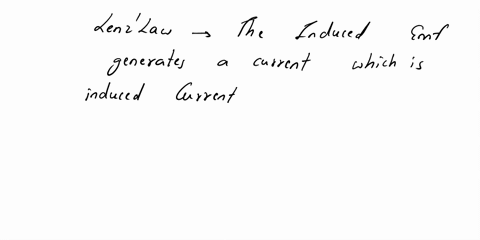 Lenz'Law → The Induced Emf
generates a current which is
induced Current